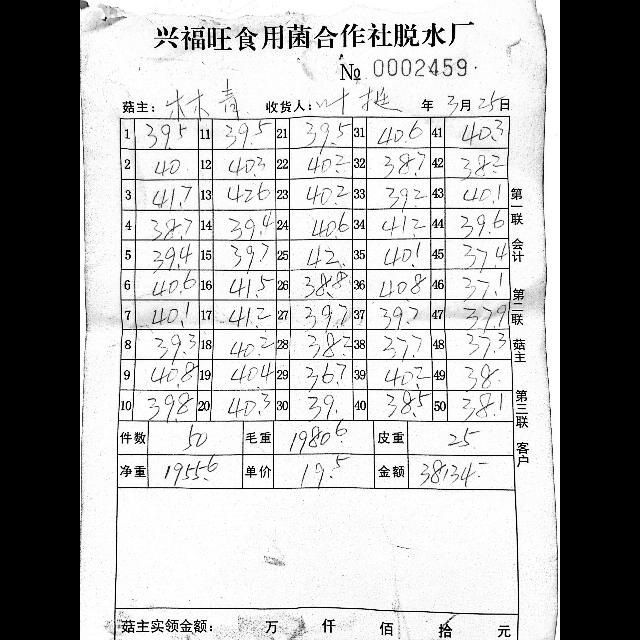 兴福旺食用菌合作社脱水厂
№ 0002459
菇主: 林青 收货人: 叶挺 年 3月25日
1 39.5 11 39.5 21 39.5 31 40.6 41 40.3
2 40 12 40.3 22 40.2 32 38.7 42 38.2
3 41.7 13 42.6 23 40.2 33 39.2 43 40.1
4 38.7 14 39.4 24 40.6 34 41.2 44 39.6
5 39.4 15 39.7 25 42. 35 40.1 45 37.4
6 40.6 16 41.5 26 38.8 36 40.8 46 37.1
7 40.1 17 41.2 27 39.7 37 39.7 47 37.9
8 39.3 18 40.2 28 38.2 38 37.7 48 37.3
9 40.8 19 40.4 29 36.7 39 40.2 49 38.
10 39.8 20 40.3 30 39. 40 38.5 50 38.1
件数 50 毛重 1980.6 皮重 25
净重 1955.6 单价 19.5 金额 38134
菇主实领金额: 万 仟 佰 拾 元
第一联 会计
第二联 菇主
第三联 客户